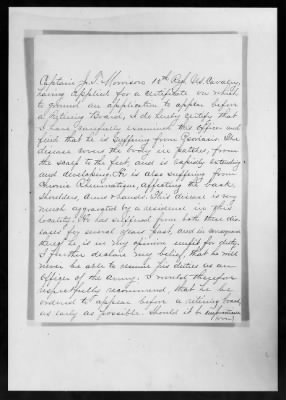 Captain J. T. Morrison 10th Reg. U.S. Cavalry,
having applied for a certificate on which
to ground an application to appear before
a Retiring Board, I do hereby certify that
I have carefully examined this officer and
find that he is suffering from Psoriasis. The
disease covers the body in patches, from
the scalp to the feet, and is rapidly extending
and developing. He is also suffering from
Chronic Rheumatism, affecting the back,
shoulders, arms & hands. This disease is very
much aggravated by a residence in this
locality. He has suffered from both these dis-
eases for several years past, and in consequence
thereof he is in my opinion unfit for duty.
I further declare my belief, that he will
never be able to resume his duties as an
officer of the Army. I would therefore
respectfully recommend, that he be
ordered to appear before a retiring board,
as early as possible. Should it be